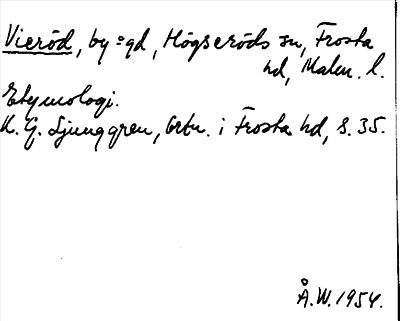 Vieröd, by = gd, Högseröds sn, Frosta
hd, Malm. l.
Etymologi.
K. G. Ljunggren, Ortn. i Frosta hd, s. 35.
Å. W. 1954.